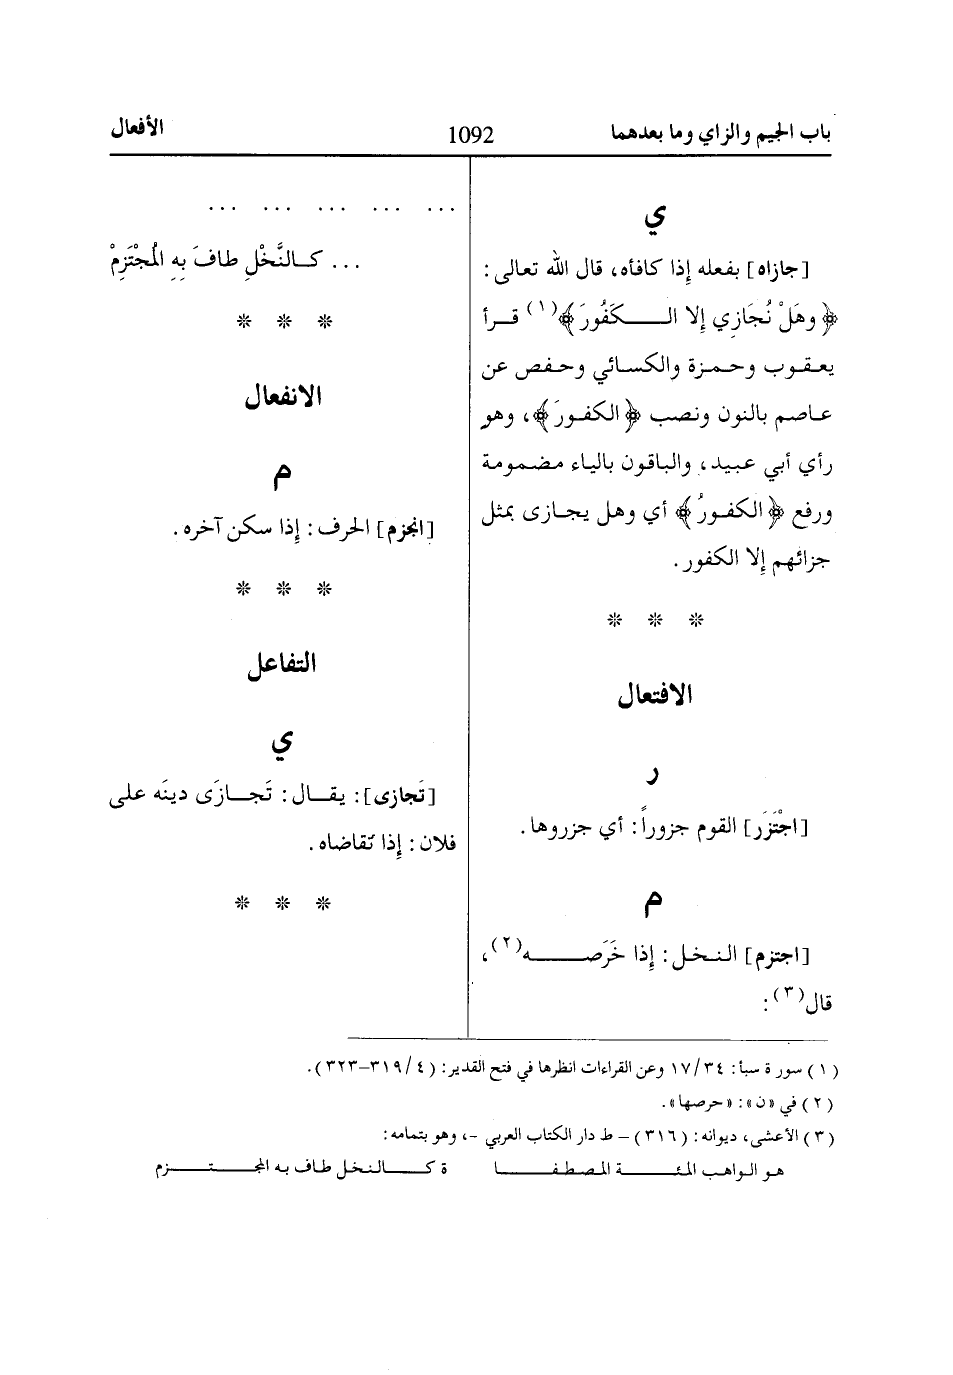 باب الجيم والزاي وما بعدهما
1092
الأفعال
ي
[جازاه] بفعله إذا كافأه، قال الله تعالى:
﴿وهَلْ نُجَازِي إلا الكَفُورَ﴾(١) قرأ
يعقوب وحمزة والكسائي وحفص عن
عاصم بالنون ونصب ﴿الكفورَ﴾، وهو
رأي أبي عبيد، والباقون بالياء مضمومة
ورفع ﴿الكفورُ﴾ أي وهل يجازى بمثل
جزائهم إلا الكفور.
* * *
الافتعال
ر
[اجْتَزَر] القوم جزوراً: أي جزروها.
م
[اجتزم] النخل: إذا خَرَصه(٢)،
قال(٣):
... ... ... ... ...
... كالنَّخْلِ طافَ بِهِ المُجْتَزِمْ
* * *
الانفعال
م
[انجزم] الحرف: إذا سكن آخره.
* * *
التفاعل
ي
[تَجازى]: يقال: تَجازَى دينَه على
فلان: إذا تقاضاه.
* * *
(١) سورة سبأ: ١٧/٣٤ وعن القراءات انظرها في فتح القدير: (٣١٩/٤-٣٢٣).
(٢) في «ن»: «حرصها».
(٣) الأعشى، ديوانه: (٣١٦) – ط دار الكتاب العربي -، وهو بتمامه:
هو الواهب المئة المصطفا ة كالنخل طاف به المجتزم